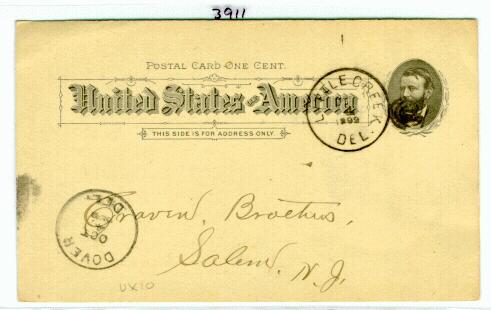 3911
POSTAL CARD ONE CENT.
United States of America
THIS SIDE IS FOR ADDRESS ONLY.
LITTLE CREEK
1899
DEL.
DOVER
OCT
DEL
Craven, Brothers,
Salem, N. J.
UX10